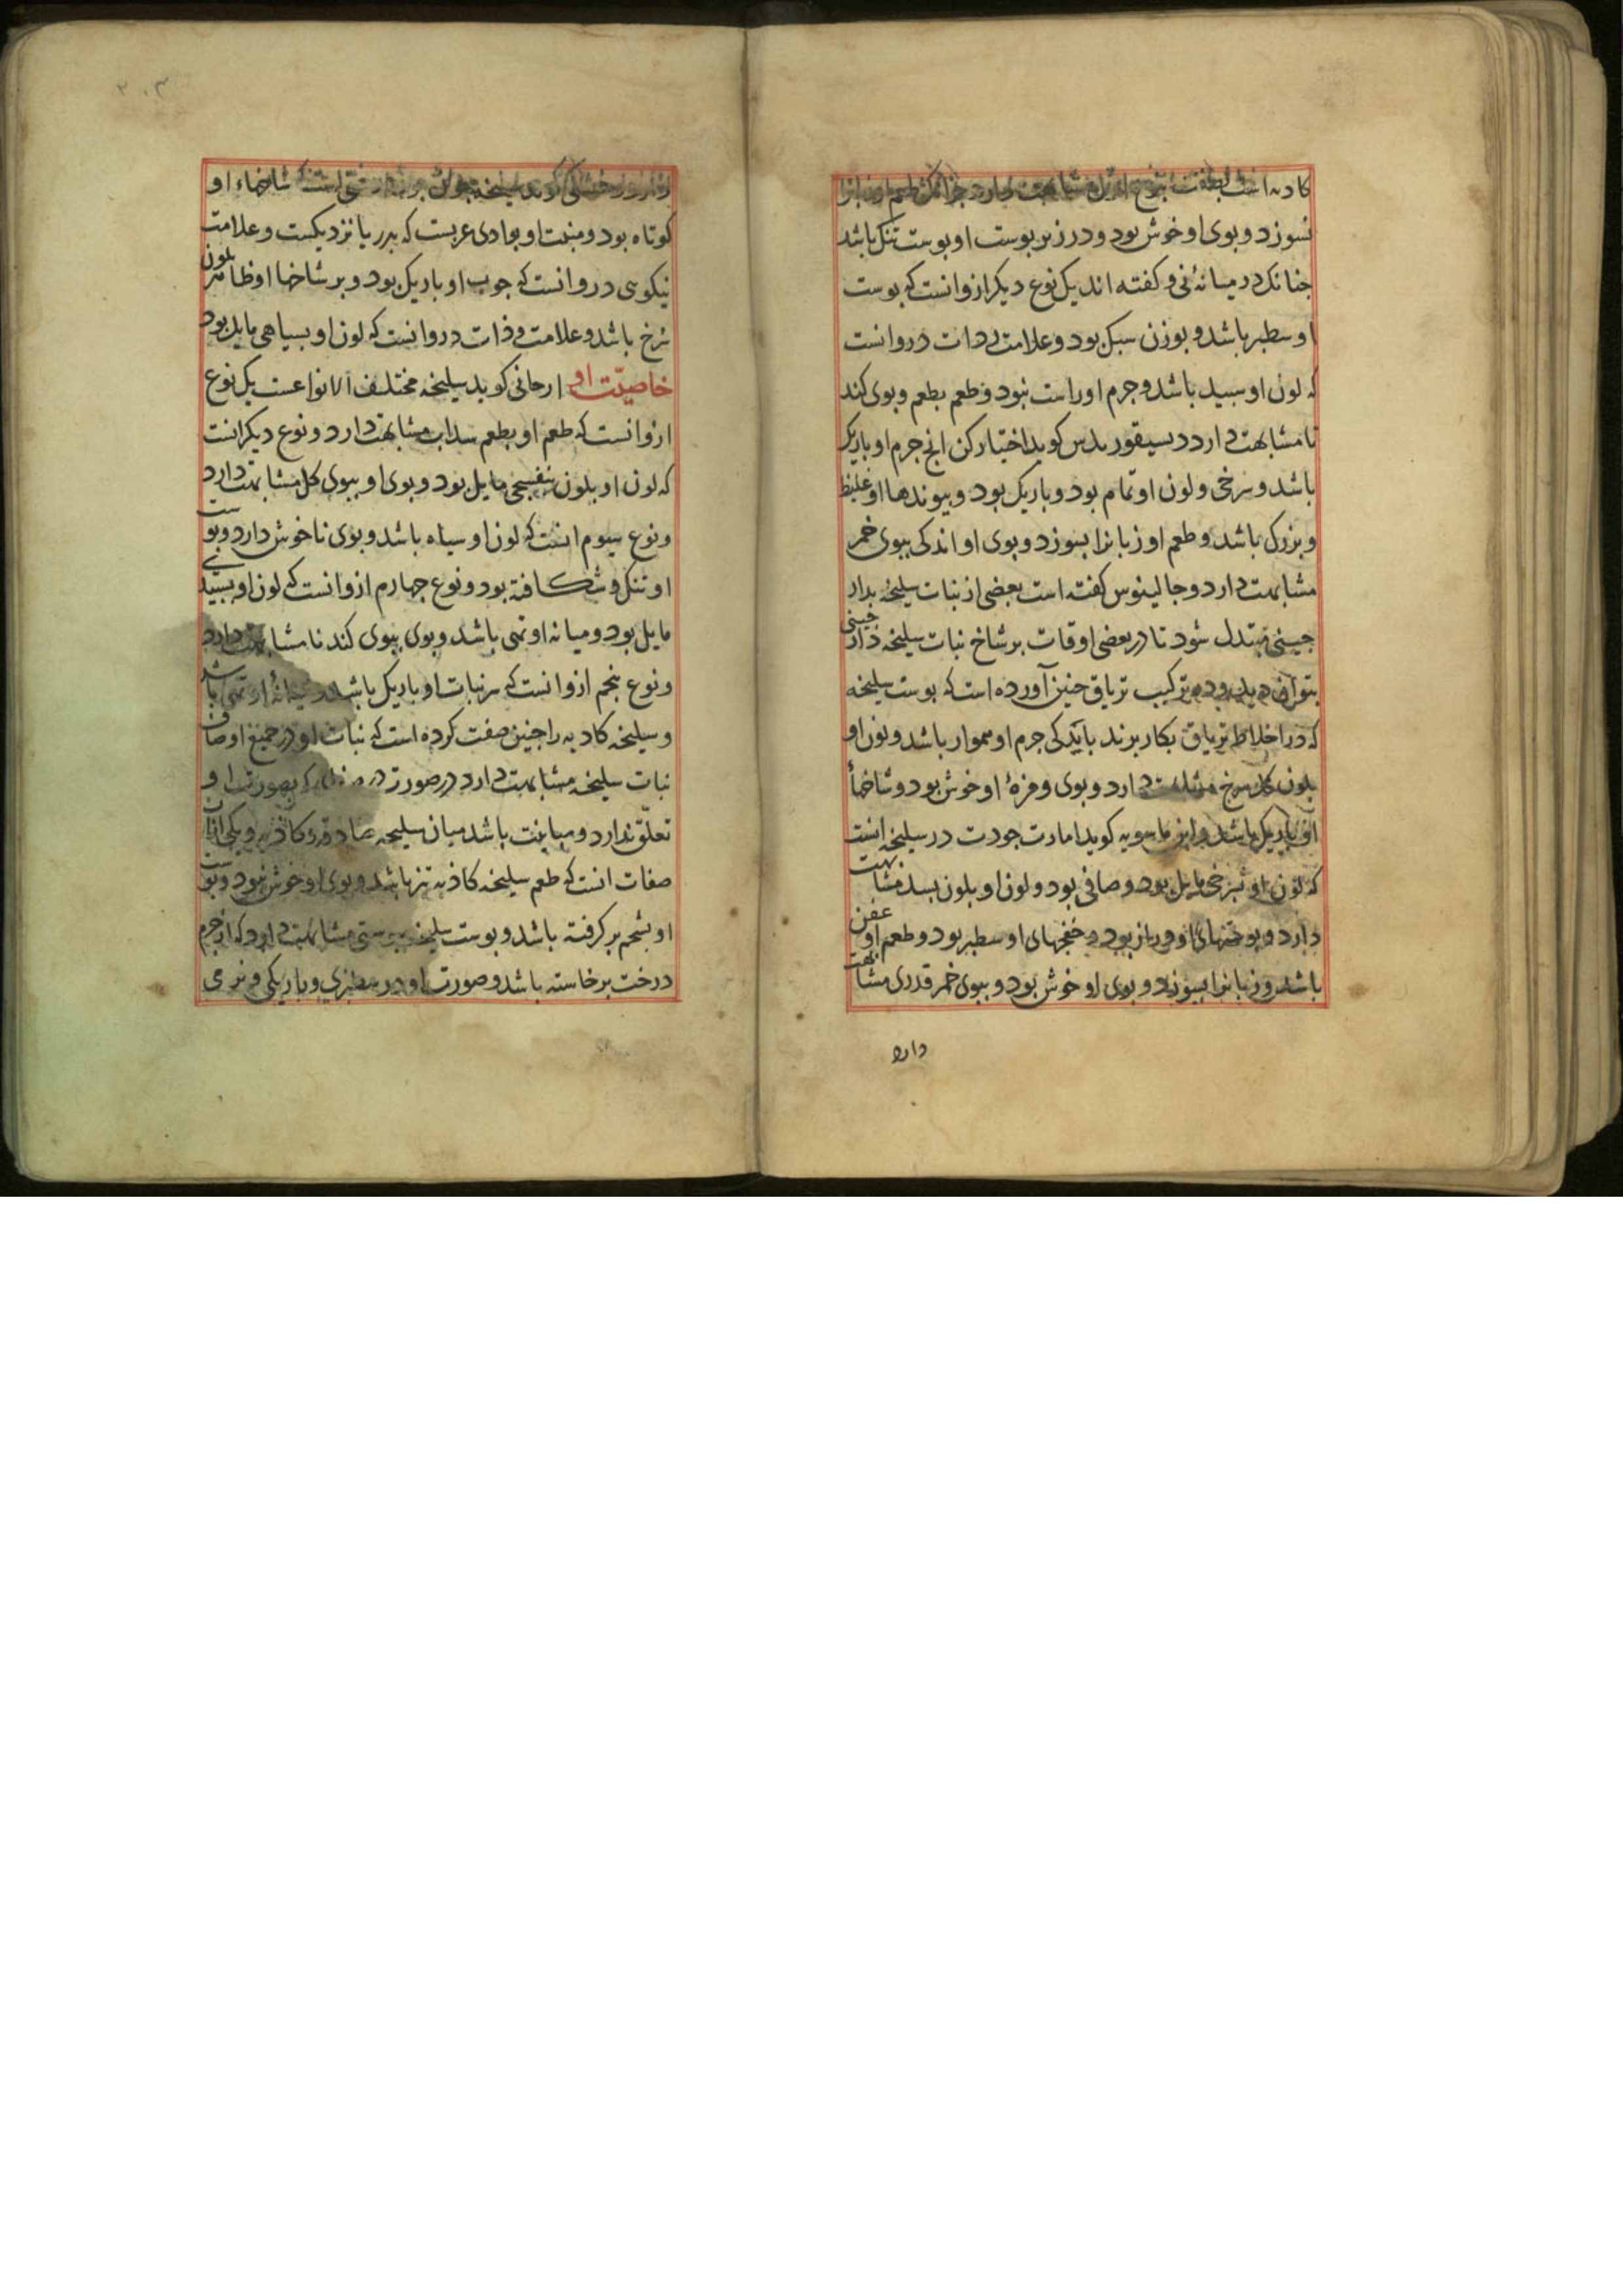 کادبه است
نسوزد و بوی او خوش بود و در زیر پوست او پوست تنک باشد
جنانک در میانه نی و کفته اند یک نوع دیکر ازو انست که بوست
او سطبر باشد و بوزن سبک بود و علامت رداءت درو انست
که لون او سبید باشد و جرم او راست نبود و طعم بطعم و بوی کند
نا مشابهت دارد دیسیقوریدس کوید اختیار کن انج جرم او باریک
باشد و سرخی و لون او تمام بود و باریک بود و بیوندها او غلیظ
و بزرک باشد و طعم او زبانرا بسوزد و بوی او اندکی ببوی خمر
مشابهت دارد و جالینوس کفته است بعضی از نبات سلیخه بدار
جینی مبتدل شود تا در بعضی اوقات بر شاخ نبات سلیخه دار جینی
بتوان دید و در ترکیب تریاق جنین آورده است که بوست سلیخه
که در اخلاط تریاق بکار برند باید کی جرم او هموار باشد و لون او
بلون کل سرخ دارد و بوی و مزهٔ او خوش بود و شاخها
او باریک باشد و ابن ماسویه کوید امارت جودت در سلیخه انست
که لون او بسرخی مایل بود و صافی بود و لون او بلون بسد مشابهت
دارد و او دراز بود و او سطبر بود و طعم او عفن
باشد و زبانرا بسوزد و بوی او خوش بود و ببوی خمر قدری مشابهت
دارد
۲۰۳
است که شاخهاء او
کوتاه بود و منبت او بوادی عربست که بدریا نزدیکست و علامت
نیکویی درو انست که جوب او باریک بود و بر شاخها او ظاهر بلون
سرخ باشد و علامت ردات درو انست که لون او بسیاهی مایل بود
خاصیّت او ارجانی کوید سلیخه مختلف الانواعست یک نوع
ازو انست که طعم او بطعم سداب مشابهت دارد و نوع دیکر انست
که لون او بلون بنفسجی مایل بود و بوی او ببوی کل مشابهت دارد
و نوع سیوم انست که لون او سیاه باشد و بوی ناخوش دارد و بوست
او تنک و شکافته بود و نوع جهارم ازو انست که لون او بسبیدی
مایل بود و میانه او تهی باشد و بوی ببوی کندنا مشابهت دارد
و نوع بنجم ازو انست که سر نبات او باریک باشد و میانهٔ او تهی باشد
و سلیخه کادبه را جنین صفت کرده است که نبات او در جمیع اوصاف
نبات سلیخه مشابهت دارد در صورت که بصورت او
تعلّق ندارد و مباینت باشد میان سلیخه صادقه و کاذبه و یکی از آن
صفات انست که طعم سلیخه کاذبه تیز باشد و بوی او خوش نبود و بوست
او بشحم بر کرفته باشد و بوست سلیخه ببوستی مشابهت دارد که از جرم
درخت برخاسته باشد و صورت او در سطبری و باریکی و نرمی